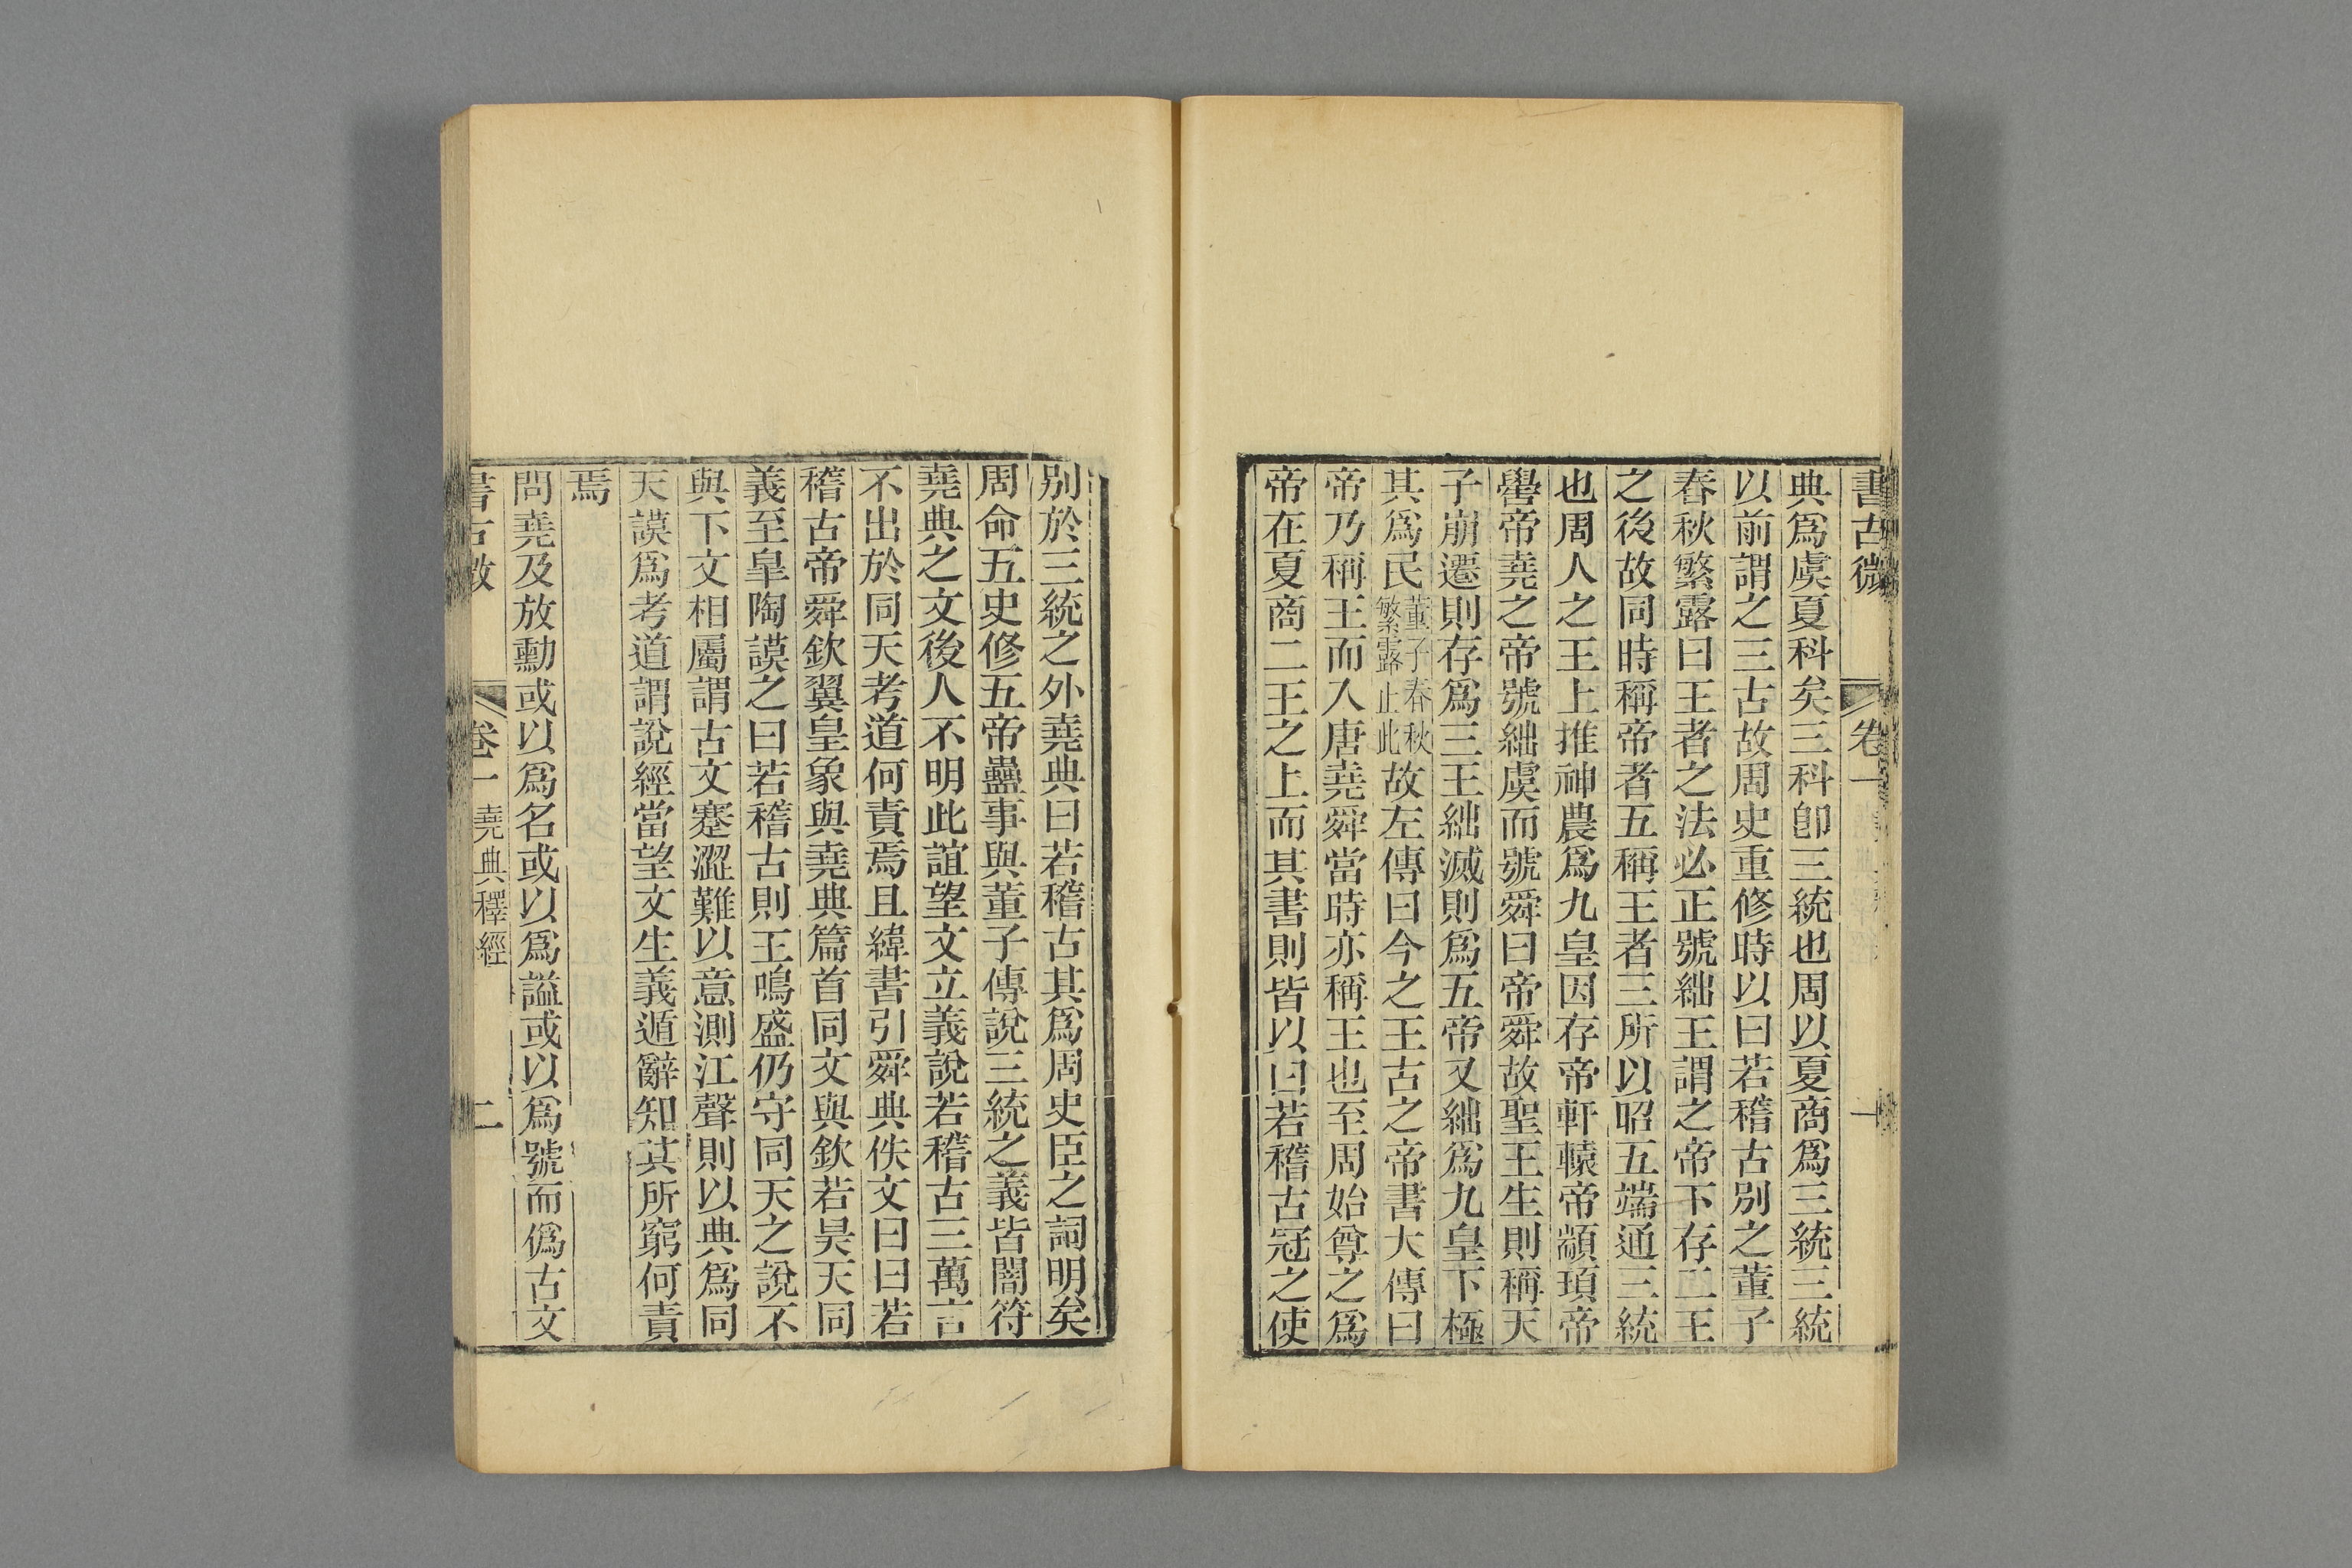 書古微 卷一 一
典爲虞夏科矣三科卽三統也周以夏商爲三統三統
以前謂之三古故周史重修時以曰若稽古別之董子
春秋繁露曰王者之法必正號絀王謂之帝下存二王
之後故同時稱帝者五稱王者三所以昭五端通三統
也周人之王上推神農爲九皇因存帝軒轅帝顓頊帝
嚳帝堯之帝號絀虞而號舜曰帝舜故聖王生則稱天
子崩遷則存爲三王絀滅則爲五帝又絀爲九皇下極
其爲民董子春秋繁露止此故左傳曰今之王古之帝書大傳曰
帝乃稱王而入唐堯舜當時亦稱王也至周始尊之爲
帝在夏商二王之上而其書則皆以曰若稽古冠之使
別於三統之外堯典曰若稽古其爲周史臣之詞明矣
周命五史修五帝蠱事與董子傳說三統之義皆闇符
堯典之文後人不明此誼望文立義說若稽古三萬言
不出於同天考道何責焉且緯書引舜典佚文曰曰若
稽古帝舜欽翼皇象與堯典篇首同文與欽若昊天同
義至臯陶謨之曰若稽古則王鳴盛仍守同天之說不
與下文相屬謂古文蹇澀難以意測江聲則以典爲同
天謨爲考道謂說經當望文生義遁辭知其所窮何責
焉
問堯及放勳或以爲名或以爲諡或以爲號而僞古文
書古微 卷一 堯典釋經 二